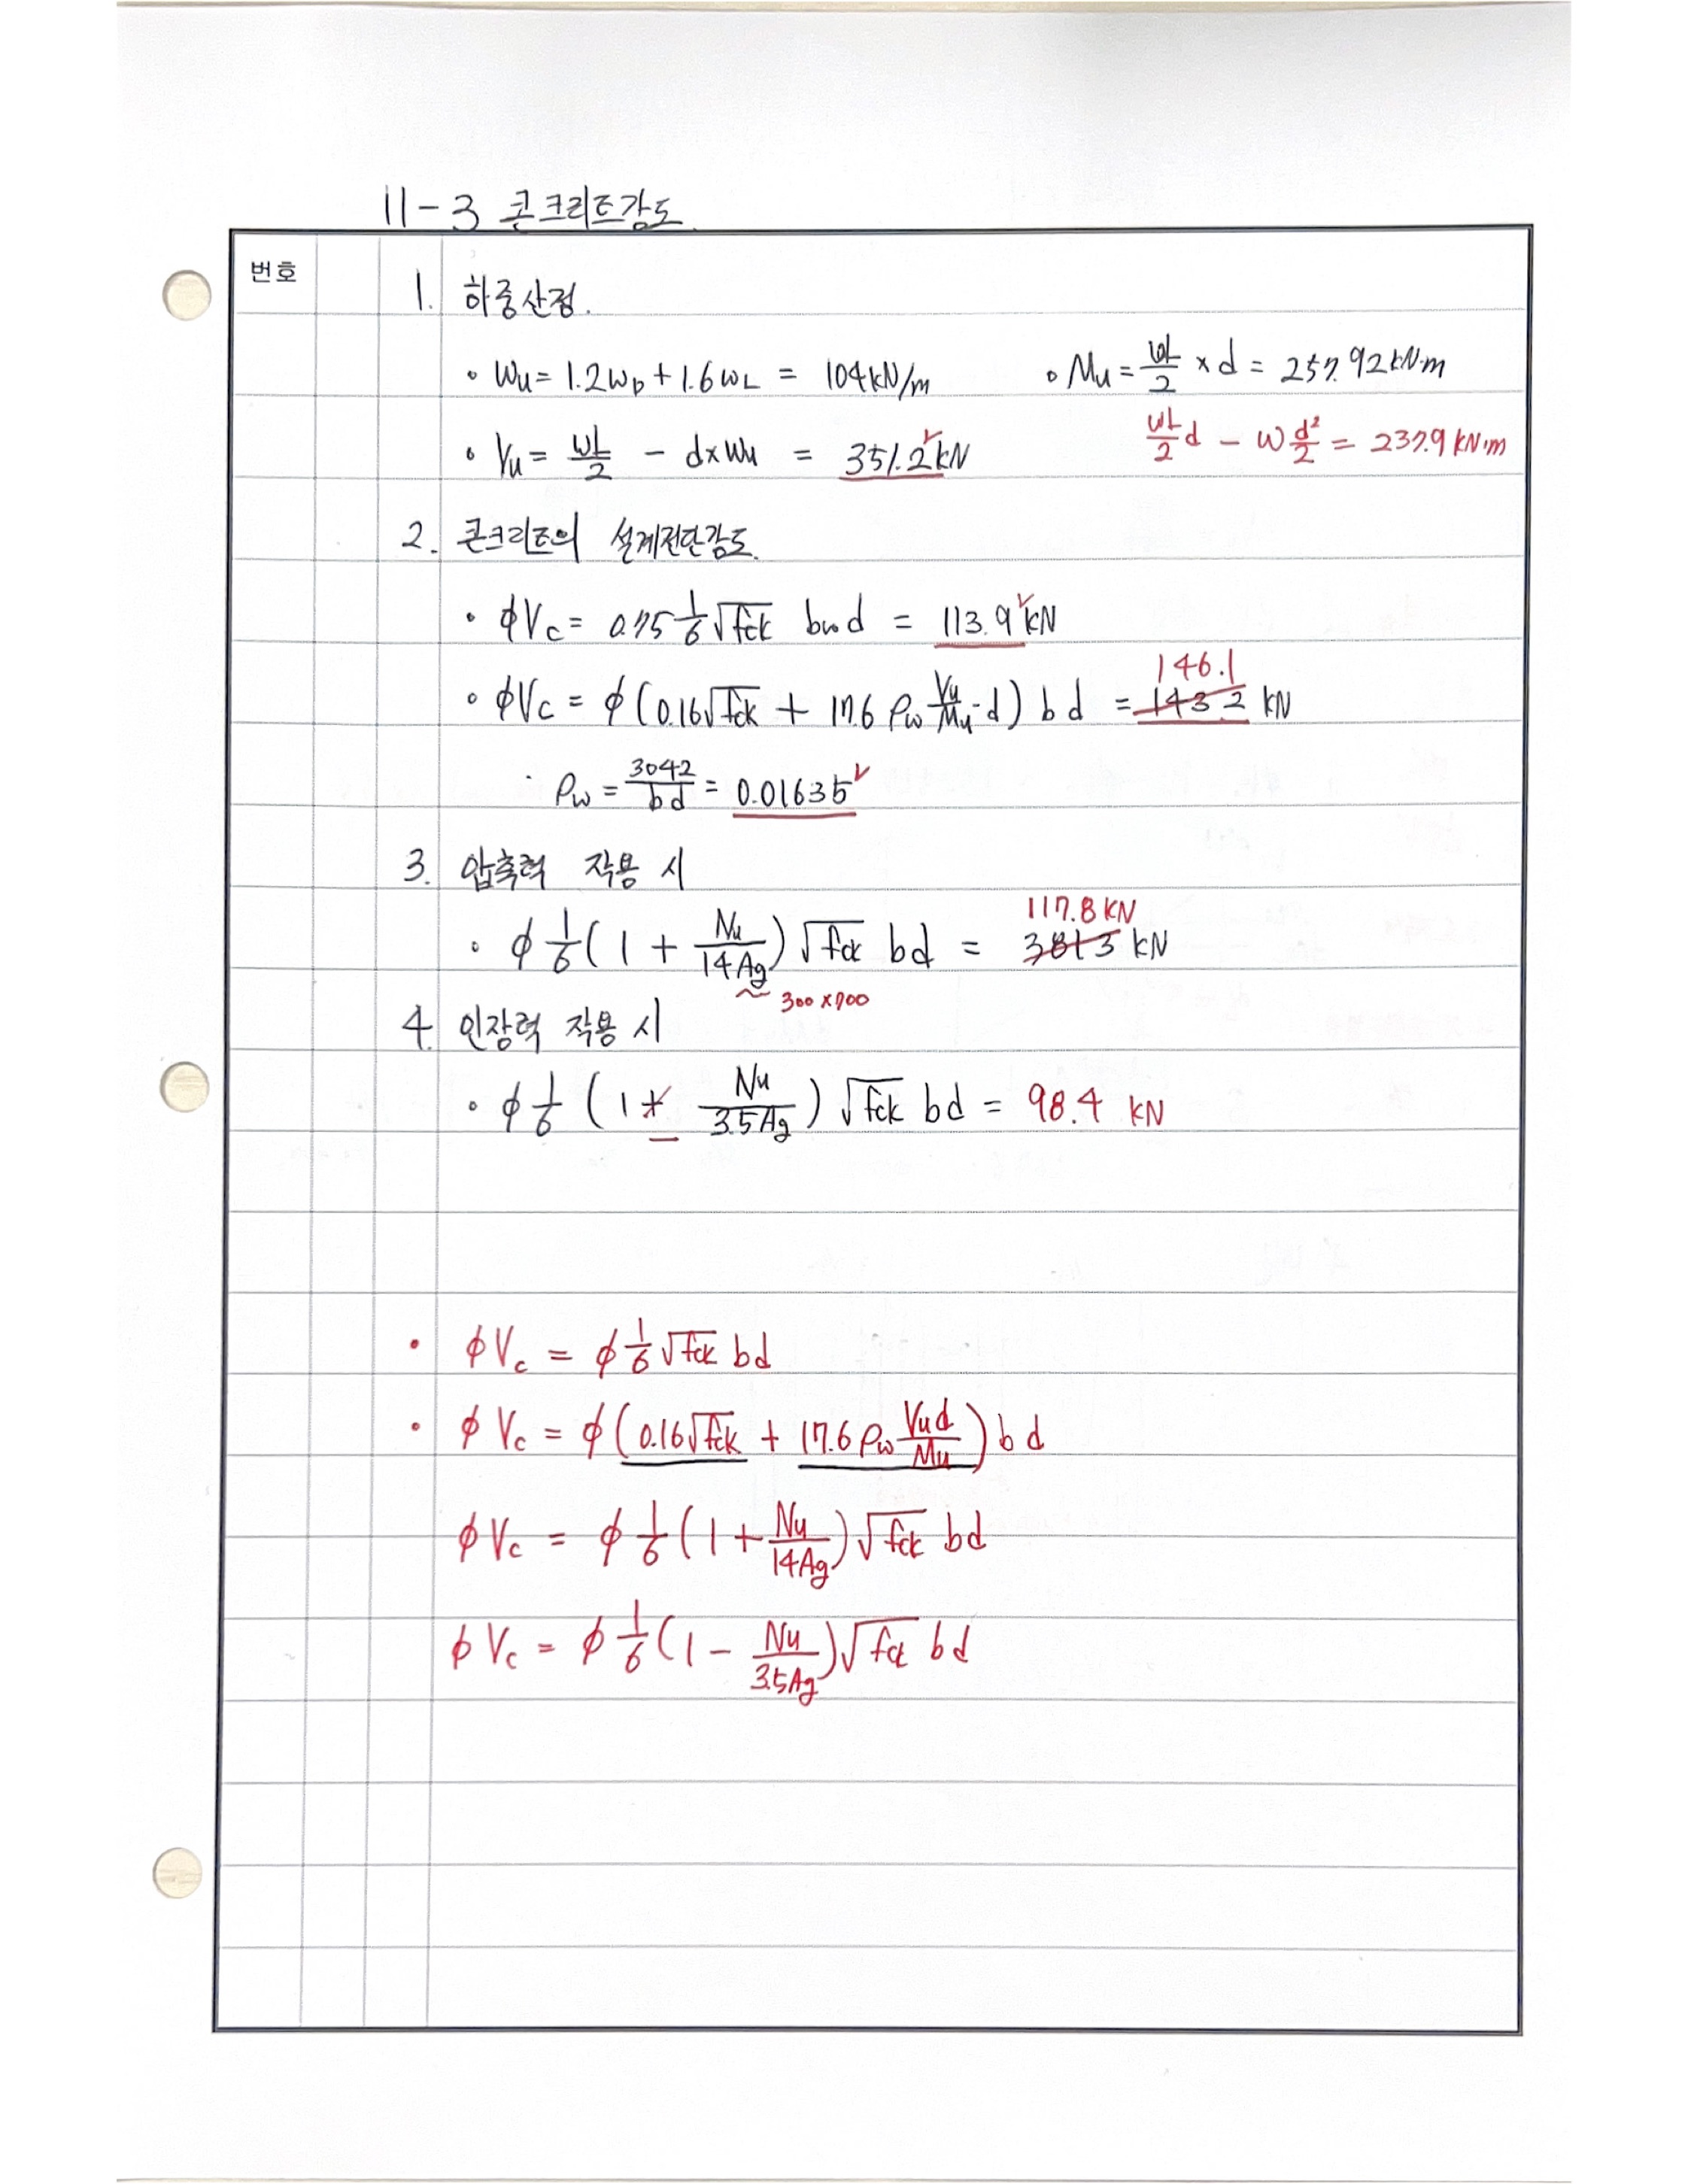 11-3 콘크리트강도
번호
1. 하중산정.
∘ Wu = 1.2wD + 1.6wL = 104kN/m ∘ Mu = wL/2 × d = 257.92kN·m
∘ Vu = wL/2 - d×Wu = 351.2kN ✓ wL/2 d - w d²/2 = 237.9 kN·m
2. 콘크리트의 설계전단강도.
• φVc = 0.75 1/6 √fck bwd = 113.9 kN ✓
146.1
∘ φVc = φ(0.16√fck + 17.6 ρw Vu/Mu·d) bd = 143.2 kN
· ρw = 3042/bd = 0.01635 ✓
3. 압축력 작용 시
117.8 KN
∘ φ 1/6 (1 + Nu/14Ag) √fck bd = 381.3 kN
300×700
4. 인장력 작용 시
∘ φ 1/6 (1 - Nu/3.5Ag) √fck bd = 98.4 kN
• φVc = φ 1/6 √fck bd
• φVc = φ(0.16√fck + 17.6 ρw Vud/Mu) bd
φVc = φ 1/6 (1 + Nu/14Ag) √fck bd
φVc = φ 1/6 (1 - Nu/3.5Ag) √fck bd